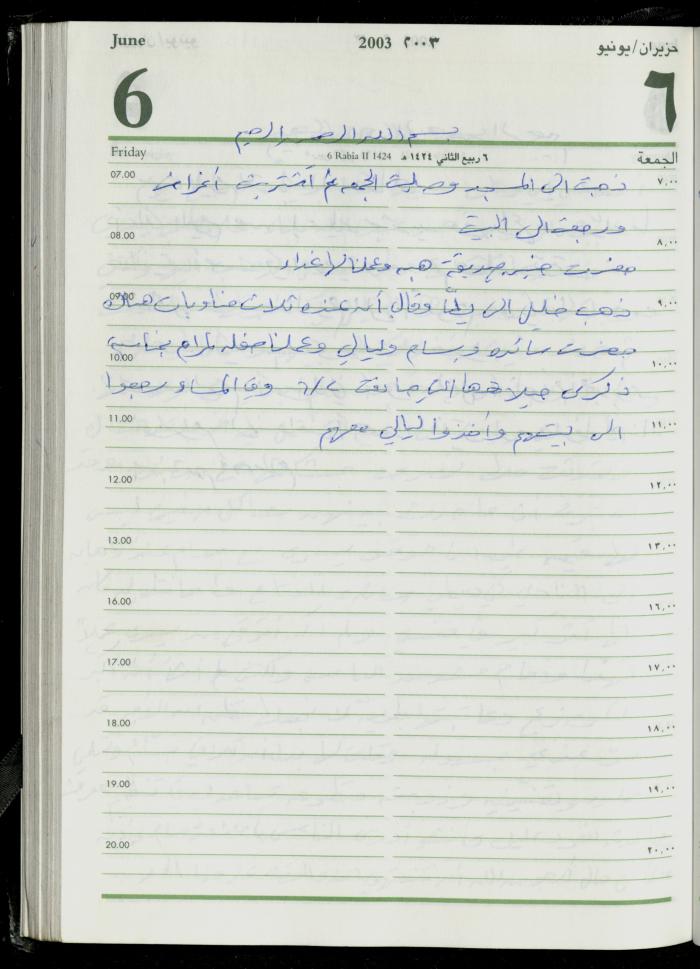 June 2003 ٢٠٠٣ حزيران/يونيو
6 ٦
بسم الله الرحمن الرحيم
Friday 6 Rabia II 1424 ٦ ربيع الثاني ١٤٢٤ هـ الجمعة
07.00 ذهبت الى المسجد وصليت الجمعه ثم اشتريت أغراض ٧,٠٠
ورجعت الى البيت
08.00 ٨,٠٠
حضرت عبير صديقة هبه وعملنا لها غداء
09.00 ذهب خليل الى يطا وقال أنه عنده ثلاث مناوبات هناك ٩,٠٠
حضرت سائده وبسام وليالي وعملنا حفله لمرام بمناسبة
10.00 ١٠,٠٠
ذكرى ميلادها التي صادفت ٦/٢ وفي المساء رجعوا
11.00 الى بيتهم وأخذوا ليالي معهم ١١,٠٠
12.00 ١٢,٠٠
13.00 ١٣,٠٠
16.00 ١٦,٠٠
17.00 ١٧,٠٠
18.00 ١٨,٠٠
19.00 ١٩,٠٠
20.00 ٢٠,٠٠